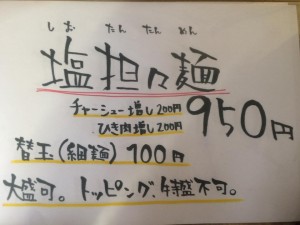 しお たん たん めん
塩担々麺
チャーシュー増し200円
ひき肉増し200円
950円
替玉(細麺) 100円
大盛可。トッピング、特盛不可。